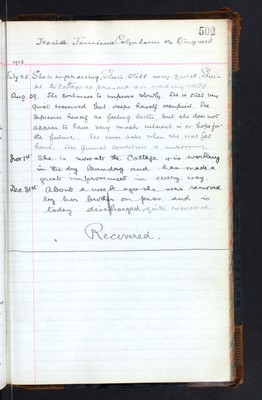 502
Jessie Jemima
1915
July 20 She is improving, She is still very quiet, She is
at the Cottage at present & is making well
Aug. 29. She continues to improve slowly. She is still very
quiet & reserved but keeps herself occupied. She
expresses herself as feeling better, but she does not
appear to have very much interest in or hope for
the future. She never asks when she will get
home. Her general condition is improving.
Nov 14 She is now at the Cottage & is working
in the dry laundry and has made a
great improvement in every way.
Dec 31st About a week ago she was removed
by her brother on pass and is
today discharged, quite recovered
Recovered.